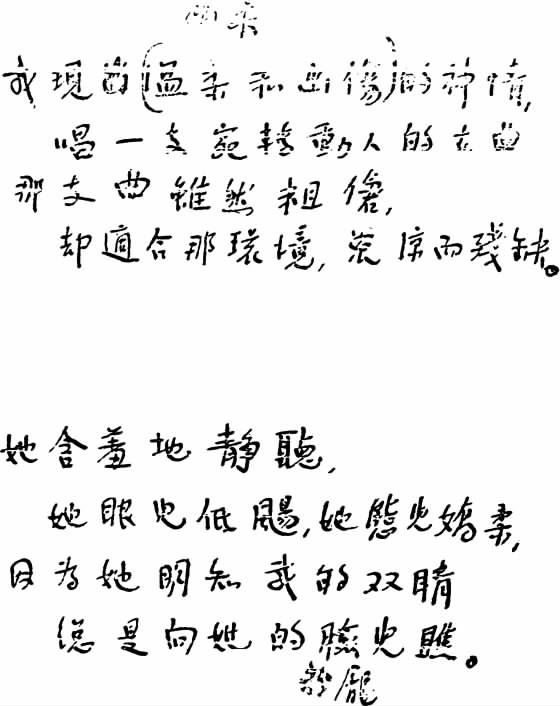 我現(溫柔和傷)的神情,
唱一支宛轉動人的古曲
那支曲雖然粗傖,
却適合那環境,荒凉而殘缺。
她含羞地靜聽,
她眼兒低颺,她態兒嬌柔,
因为她明知我的双睛
總是向她的臉兒瞧。
龐